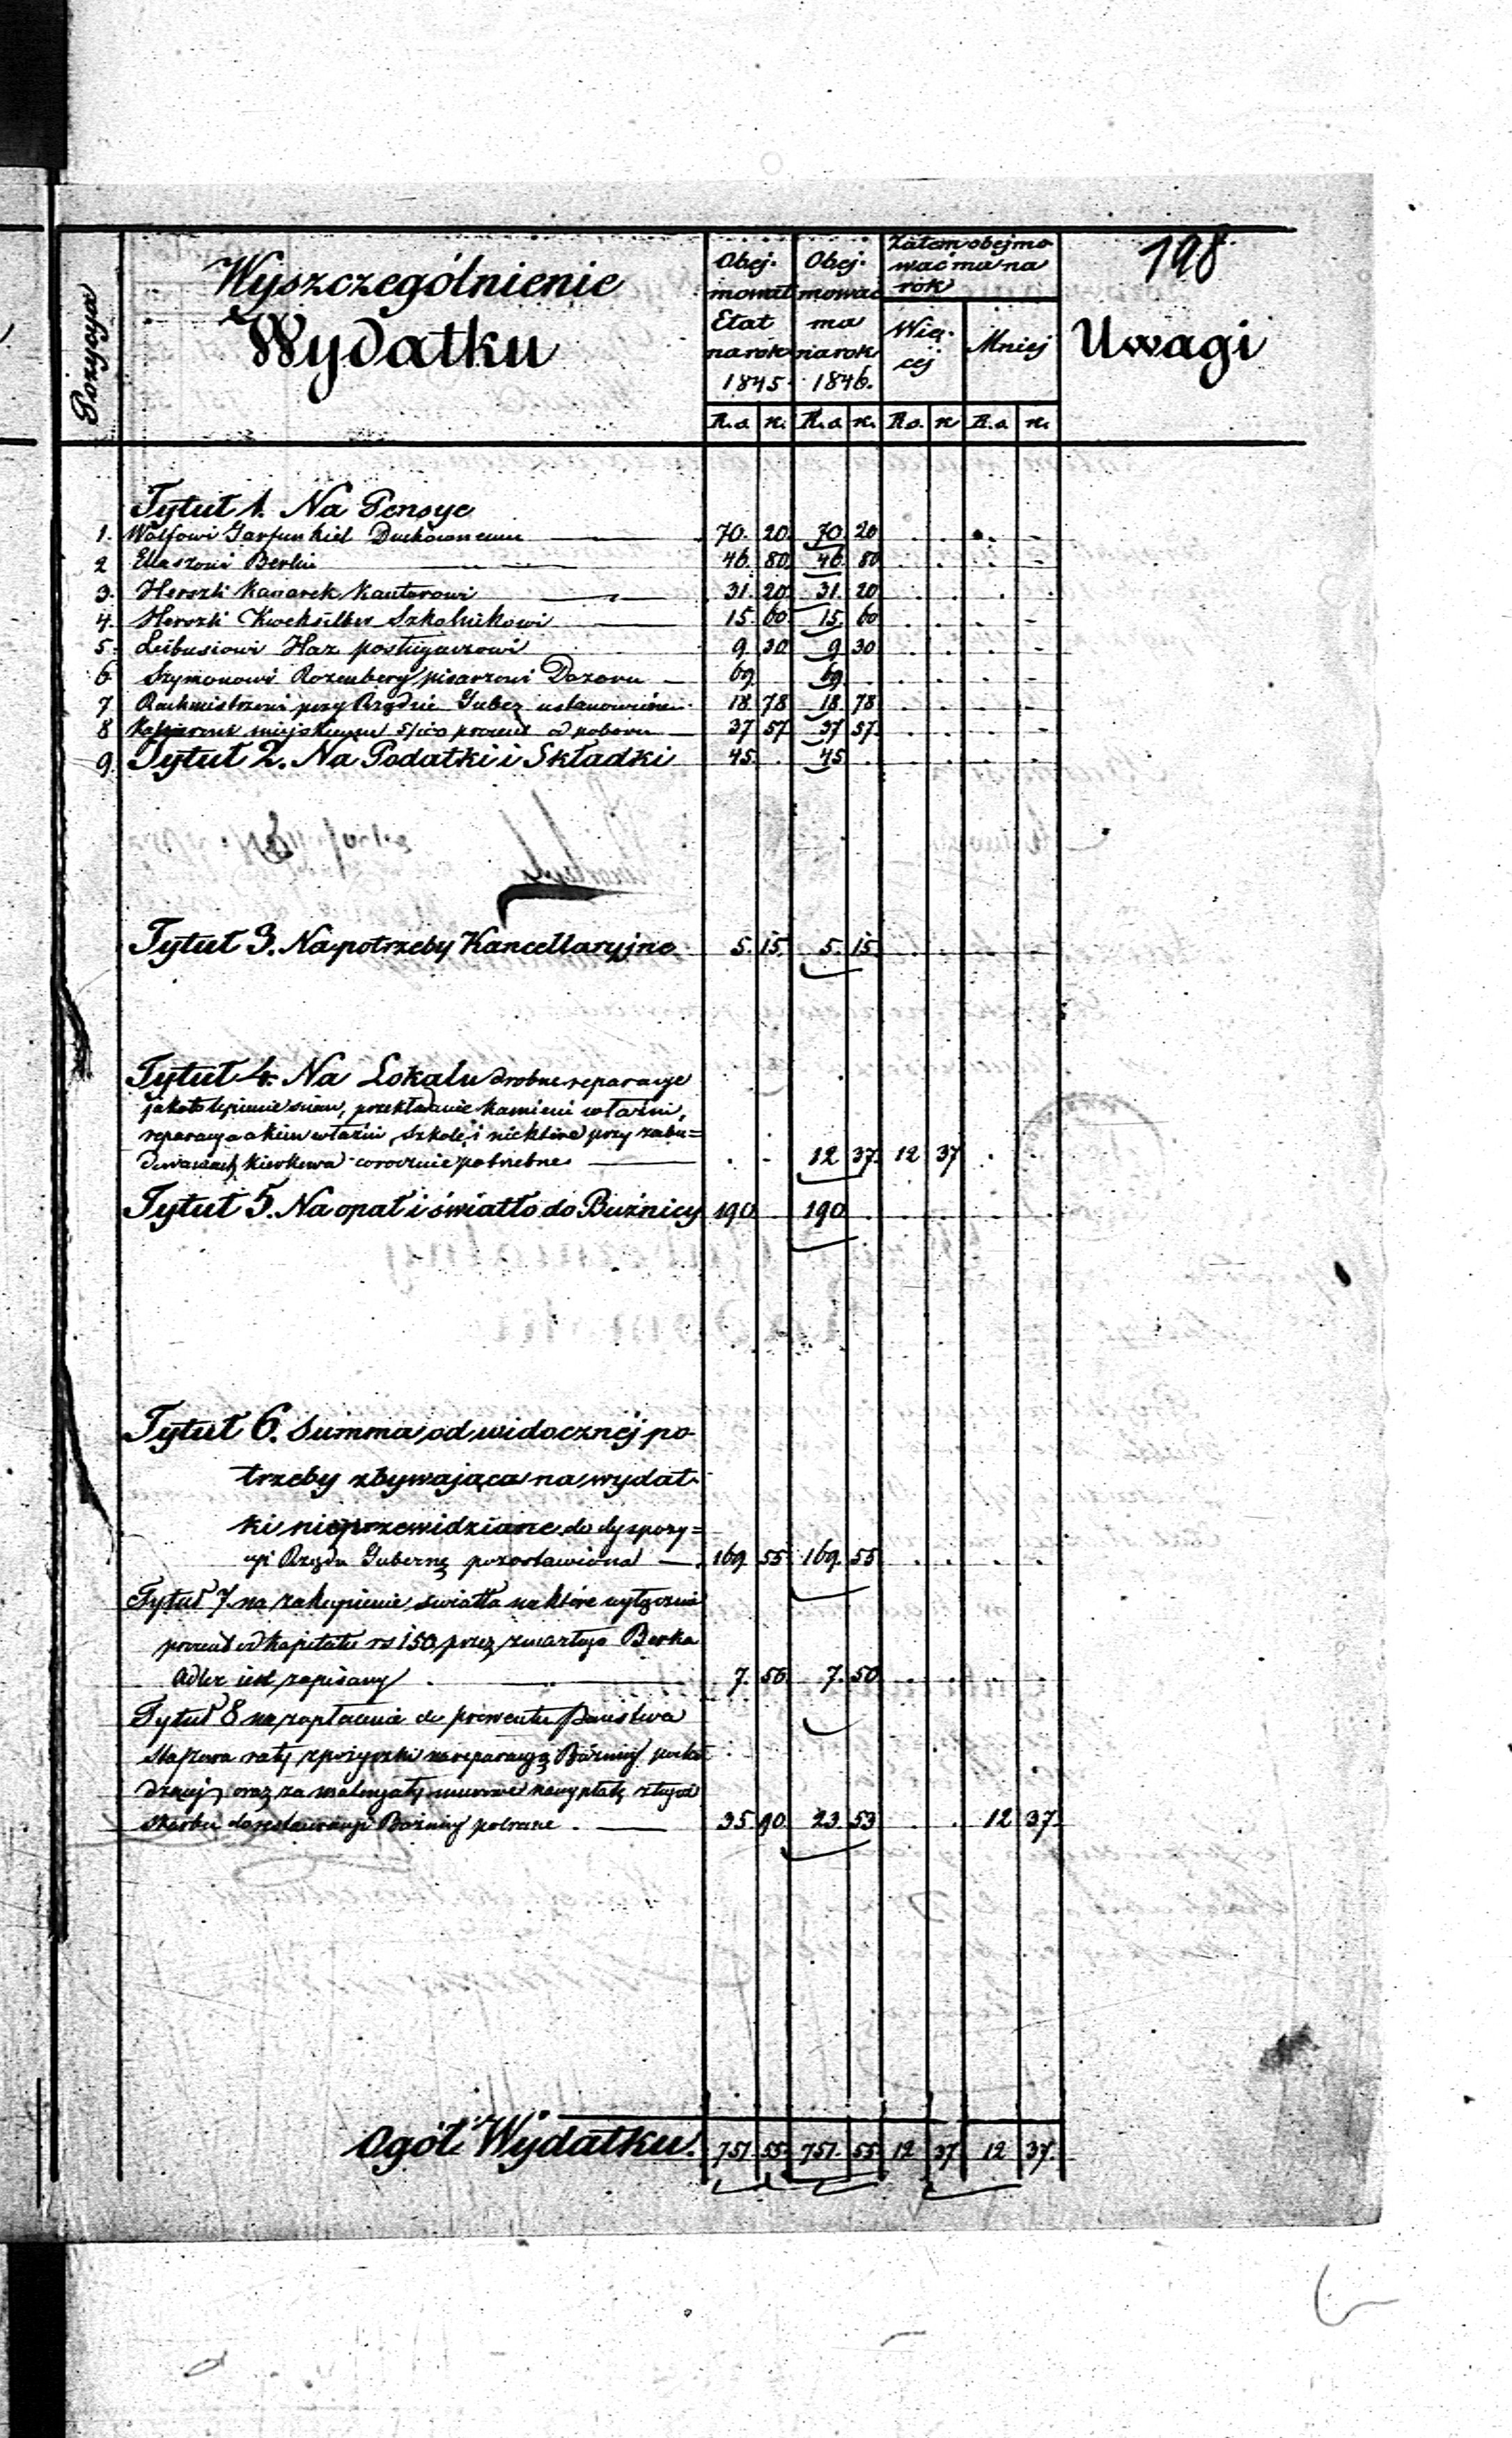 198
Pozycya
Wyszczególnienie
Wydatku
Obej-
mował
Etat
na rok
1845
Obej-
mować
ma
na rok
1846.
Zatem obejmo
wać ma na
rok
Wię-
cej
Mniej
Uwagi
R.s. k. R.s. k. R.s. k. R.s. k.
Tytuł 1. Na Pensye
1. Wolfowi Garfunkiel Duchownemu 70. 20. 70. 20
2 Eliaszowi Berlin 46. 80. 46. 80
3. Herszli Kanarek Kantorowi 31. 20. 31. 20
4. Herszli Szkolnikowi 15. 60. 15. 60
5. Leibusiowi Haz posługaczowi 9. 30. 9 30
6 Szymonowi Rozenberg pisarzowi Dozoru 69. 69.
7 Rachmistrzowi przy Rządzie Guber. 18. 78 18. 78
8 Kassyerowi miejskiemu procent od poboru 37 57. 37 57.
9. Tytuł 2. Na Podatki i Składki 45. 45
Tytuł 3. Na potrzeby Kancellaryjne 5. 15. 5. 15.
Tytuł 4. Na Lokalu drobne reparacye
jakoto lepienie ścian, przekładanie kamieni w łaźni,
reparacya okien w łaźni, Szkole, i niektóre przy zabu=
dowaniach corocznie potrzebne 12 37. 12 37
Tytuł 5. Na opał i światło do Buźnicy 190 190
Tytuł 6. Summa od widocznej po-
trzeby zbywająca na wydat-
ki nieprzewidziane do dyspozy=
cyi Rządu Guberń. pozostawiona 169. 55 169. 55
Tytuł 7. na zakupienie światła na które
procent od kapitału rs 150 przez zmarłego Berka
Adler jest zapisany 7. 50. 7. 50
Tytuł 8 na zapłacenie do Państwa
raty z pożyczki na reparacyą Bóżnicy
oraz za
Skarbu do restauracyi Bóżnicy pobrane 35. 90. 23. 53 12 37.
Ogół Wydatku. 751 55. 751. 55 12 37 12 37.